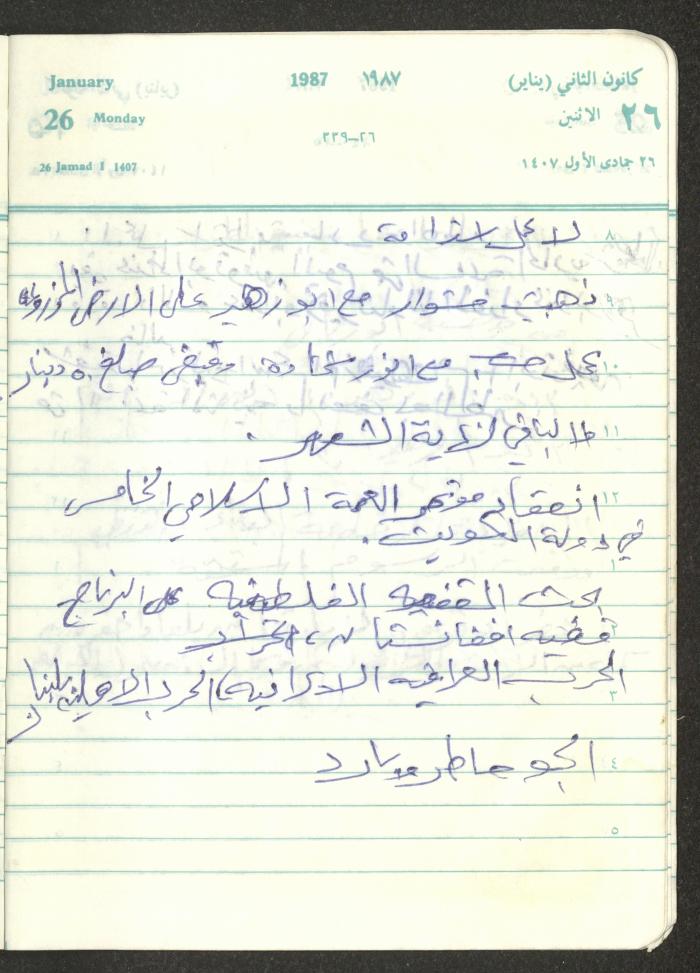 January 1987 ١٩٨٧ كانون الثاني (يناير)
26 Monday ٢٦ الاثنين
٢٦-٣٣٩
26 Jamad I 1407 ٢٦ جمادى الأول ١٤٠٧
٨ لا عمل
٩ ذهبت مشوار مع ابو زهير على الارض المزروعة
١٠ عمل مع انور شحادة وقبض مبلغ ٥٠ دينار
١١ والباقي لنهاية الشهر.
١٢ انعقاد مؤتمر القمة الاسلامي الخامس
في دولة الكويت.
١ بحث القضية الفلسطينية على البرنامج
٢ قضيه افغانستان،
٣ الحرب العراقيه الايرانيه، الحرب الاهليه بلبنان
٤ الجو ماطر وبارد
٥